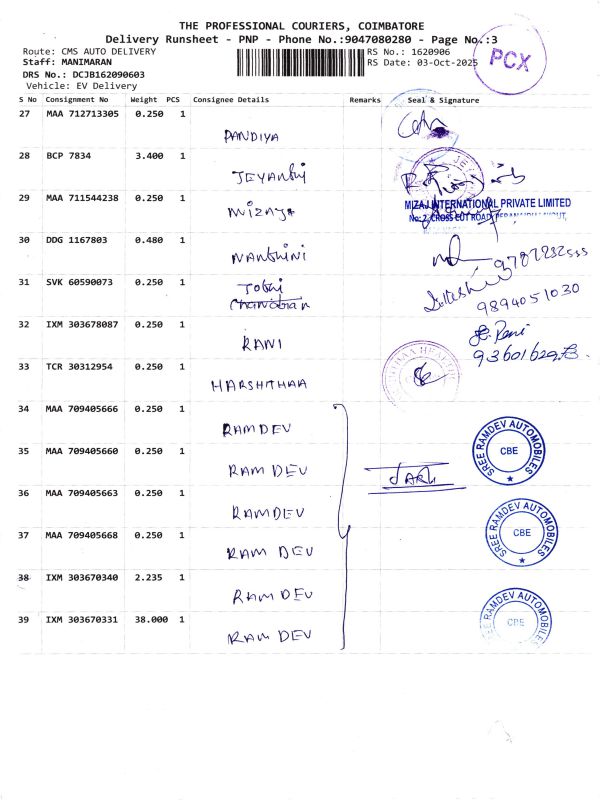 THE PROFESSIONAL COURIERS, COIMBATORE
Delivery Runsheet - PNP - Phone No.:9047080280 - Page No.:3
Route: CMS AUTO DELIVERY RS No.: 1620906
Staff: MANIMARAN RS Date: 03-Oct-2025
DRS No.: DCJB162090603
Vehicle: EV Delivery
PCX
S No Consignment No Weight PCS Consignee Details Remarks Seal & Signature
27 MAA 712713305 0.250 1
PANDIYA
28 BCP 7834 3.400 1
JEYANthi
29 MAA 711544238 0.250 1
MIZAJ
MIZAJ INTERNATIONAL PRIVATE LIMITED
No: 2, CROSS CUT ROAD,
30 DDG 1167803 0.480 1
NANDHINI
31 SVK 60590073 0.250 1
9894051030
32 IXM 303678087 0.250 1
RANI
33 TCR 30312954 0.250 1
HARSHITHAA
34 MAA 709405666 0.250 1
RAMDEV
SREE RAMDEV AUTOMOBILES
CBE
35 MAA 709405660 0.250 1
RAM DEV
36 MAA 709405663 0.250 1
RAMDEV
SREE RAMDEV AUTOMOBILES
CBE
37 MAA 709405668 0.250 1
RAM DEV
38 IXM 303670340 2.235 1
RAM DEV
SREE RAMDEV AUTOMOBILES
CBE
39 IXM 303670331 38.000 1
RAM DEV